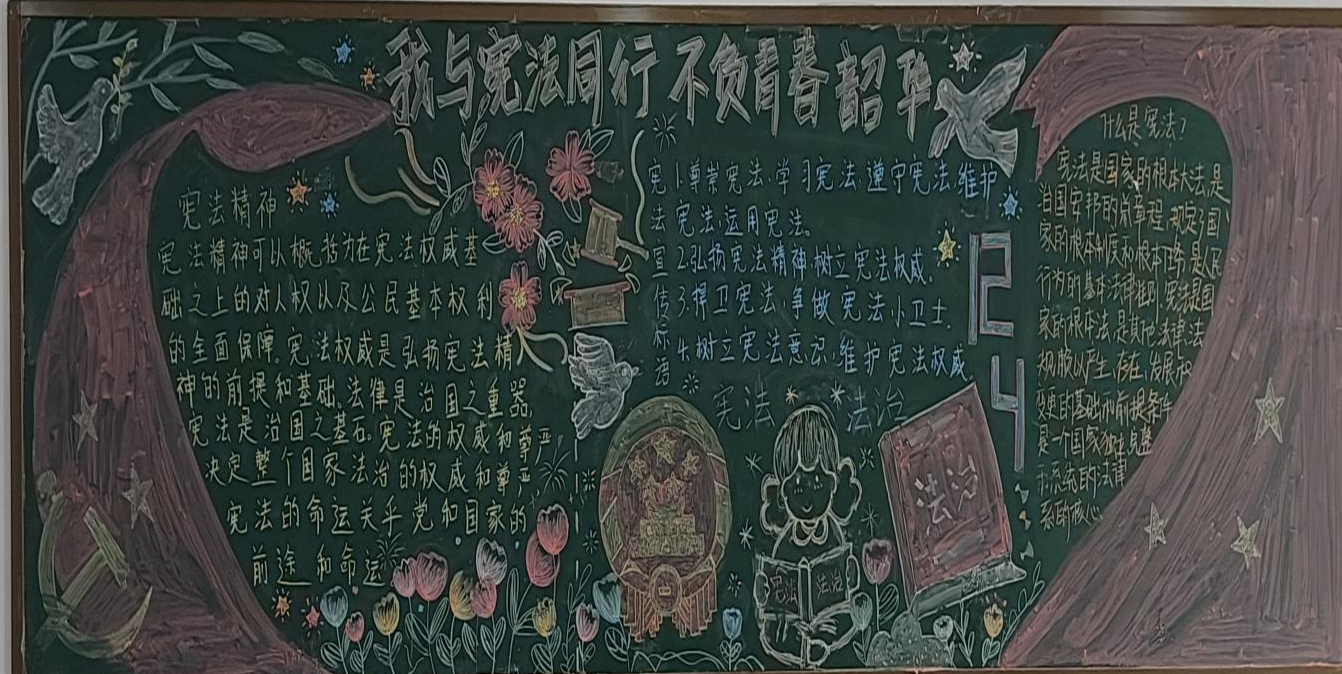 我与宪法同行 不负青春韶华
宪法精神
宪法精神可以概括为在宪法权威基
础之上的对人权以及公民基本权利
的全面保障。宪法权威是弘扬宪法精
神的前提和基础。法律是治国之重器,
宪法是治国之基石。宪法的权威和尊严
决定整个国家法治的权威和尊严
宪法的命运关乎党和国家的
前途和命运
宪法宣传标语
1.尊崇宪法.学习宪法.遵守宪法.维护
宪法.运用宪法。
2.弘扬宪法精神.树立宪法权威.
3.捍卫宪法.争做宪法小卫士.
4.树立宪法意识.维护宪法权威
宪法 法治
法治
宪法 法治
12
4
什么是宪法?
宪法是国家的根本大法,是
治国安邦的总章程,规定了国
家的根本制度和根本任务.是人民
行为的基本法律准则.宪法是国
家的根本法是其他法律法
规赖以产生.存在.发展和
变更的基础和前提条件
是一个国家独立
系统的法律
系的核心